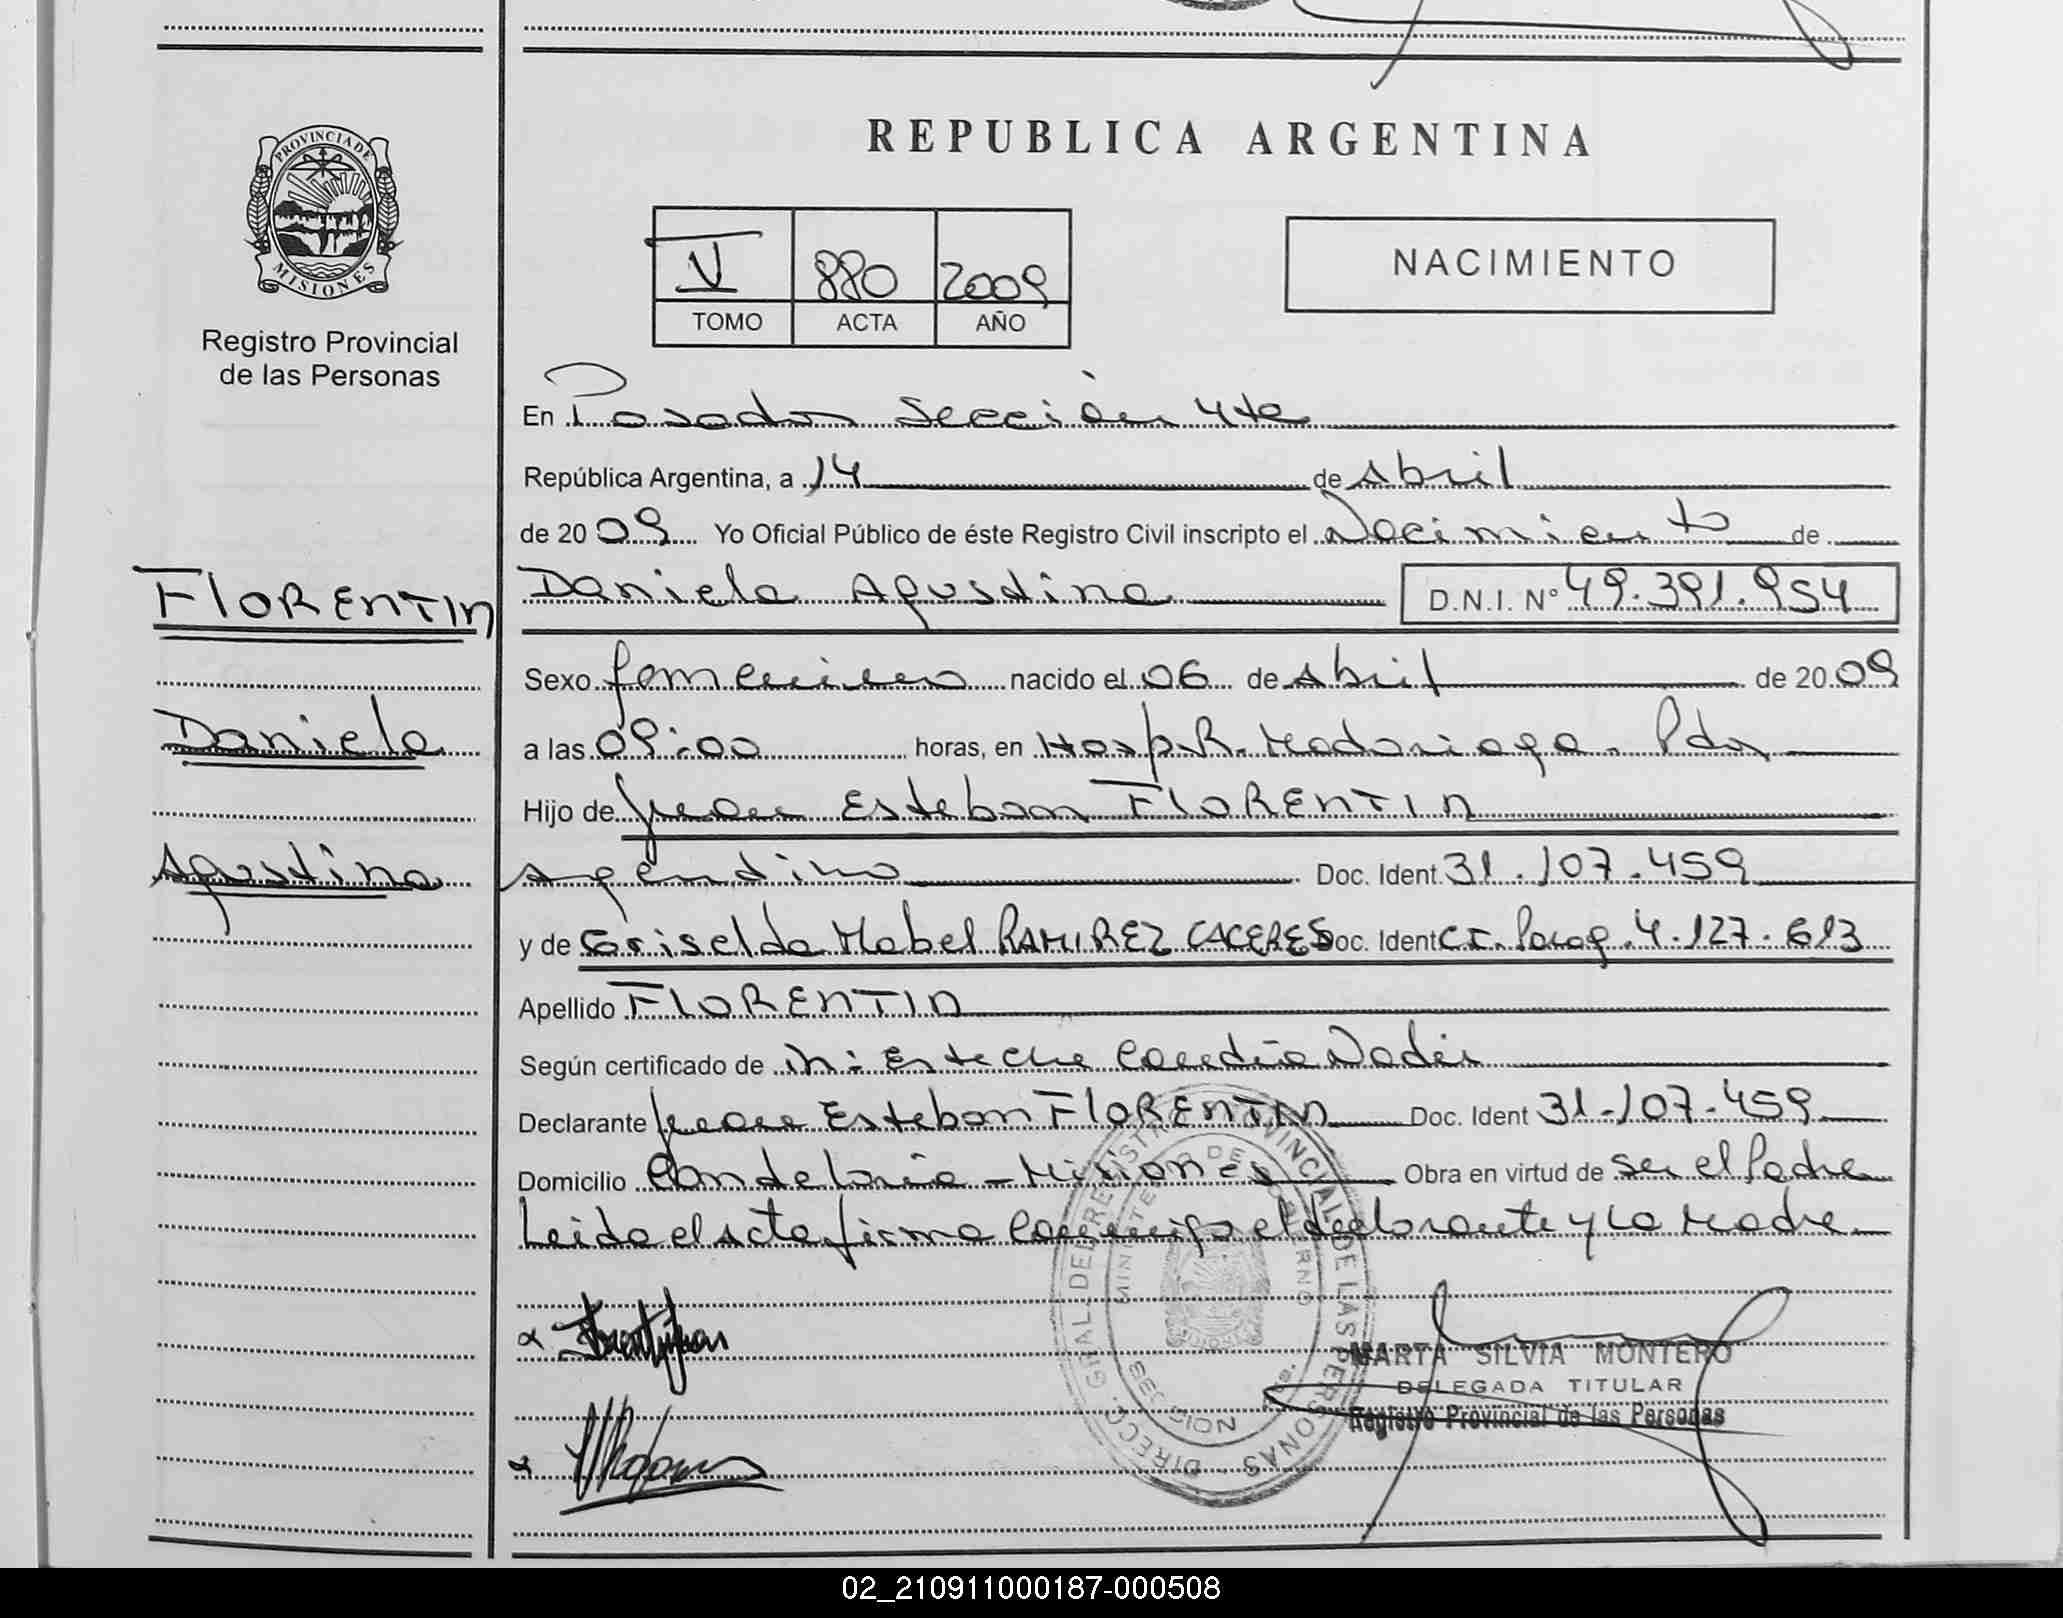 PROVINCIA DE
MISIONES
Registro Provincial
de las Personas
FLORENTIN
Daniela
Agustina
REPUBLICA ARGENTINA
V 880 2009
TOMO ACTA AÑO
NACIMIENTO
En Posadas Sección 4ta
República Argentina, a 14 de Abril
de 2009 Yo Oficial Público de éste Registro Civil inscripto el Nacimiento de
Daniela Agustina D.N.I. N° 49.391.954
Sexo femenino nacido el 06 de Abril de 2009
a las 09:00 horas, en Hosp. R. Madariaga. Pdas
Hijo de Juan Esteban FLORENTIN
Argentino Doc. Ident. 31.107.459
y de Griselda Mabel RAMIREZ CACERES Doc. Ident C.I. Parag. 4.127.613
Apellido FLORENTIN
Según certificado de Esteche Nadir
Declarante Juan Esteban FLORENTIN Doc. Ident 31.107.459
Domicilio Candelaria - Misiones Obra en virtud de ser el Padre
Leida el acta firma conmigo el declarante y la Madre
DIRECC. GRAL. DEL REGISTRO PROVINCIAL DE LAS PERSONAS
MINISTERIO DE GOBIERNO
MARTA SILVIA MONTERO
DELEGADA TITULAR
Registro Provincial de las Personas
02_210911000187-000508